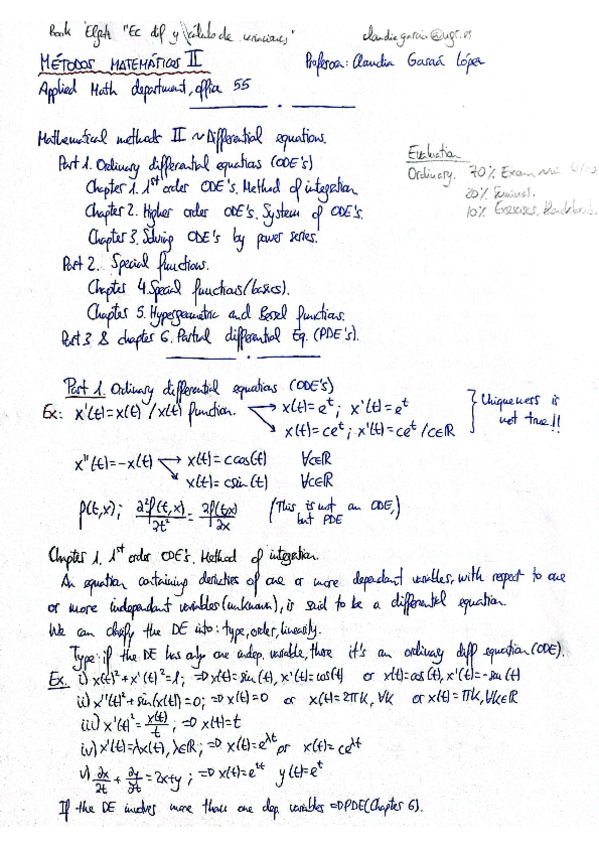 Book Elgolts "Ec dif y cálculo de variaciones"
claudiagarcia@ugr.es
MÉTODOS MATEMÁTICOS II
Professor: Claudia García López
Applied Math department, office 55
Mathematical methods II ~ Differential equations.
Evaluation
Ordinary. 70% Exam
20% Seminar.
10% Exercises,
Part 1. Ordinary differential equations (ODE's)
Chapter 1. 1st order ODE's. Method of integration
Chapter 2. Higher order ODE's. System of ODE's.
Chapter 3. Solving ODE's by power series.
Part 2. Special functions.
Chapter 4. Special functions (basics).
Chapter 5. Hypergeometric and Bessel functions.
Part 3 & chapter 6. Partial differential Eq. (PDE's).
Part 1. Ordinary differential equations (ODE's)
Ex: x'(t)=x(t) / x(t) function. → x(t)=e^t; x'(t)=e^t
→ x(t)=ce^t; x'(t)=ce^t / c∈ℝ
} Uniqueness is not true!!
x''(t)=-x(t) → x(t)=c cos(t) ∀c∈ℝ
→ x(t)=c sin(t) ∀c∈ℝ
f(t,x); ∂²f(t,x)/∂t² = ∂f(t,x)/∂x (This is not an ODE, but PDE)
Chapter 1. 1st order ODE's. Method of integration.
An equation containing derivaties of one or more dependant variables, with respect to one
or more independant variables (unknown), is said to be a differential equation.
We can clasify the DE into: type, order, linearity.
Type: if the DE has only one indep. variable, there it's an ordinary diff equation (ODE).
Ex. i) x(t)²+x'(t)²=1; ⇒ x(t)=sin(t), x'(t)=cos(t) or x(t)=cos(t), x'(t)=-sin(t)
ii) x''(t)²+sin(x(t))=0; ⇒ x(t)=0 or x(t)=2πk, ∀k or x(t)=πk, ∀k∈ℝ
iii) x'(t)²=x(t)/t; ⇒ x(t)=t
iv) x'(t)=λx(t), λ∈ℝ; ⇒ x(t)=e^λt or x(t)=ce^λt
v) ∂x/∂t + ∂y/∂t = 2x+y; ⇒ x(t)=e^2t y(t)=e^t
If the DE involves more than one dep. variables ⇒ PDE (Chapter 6).